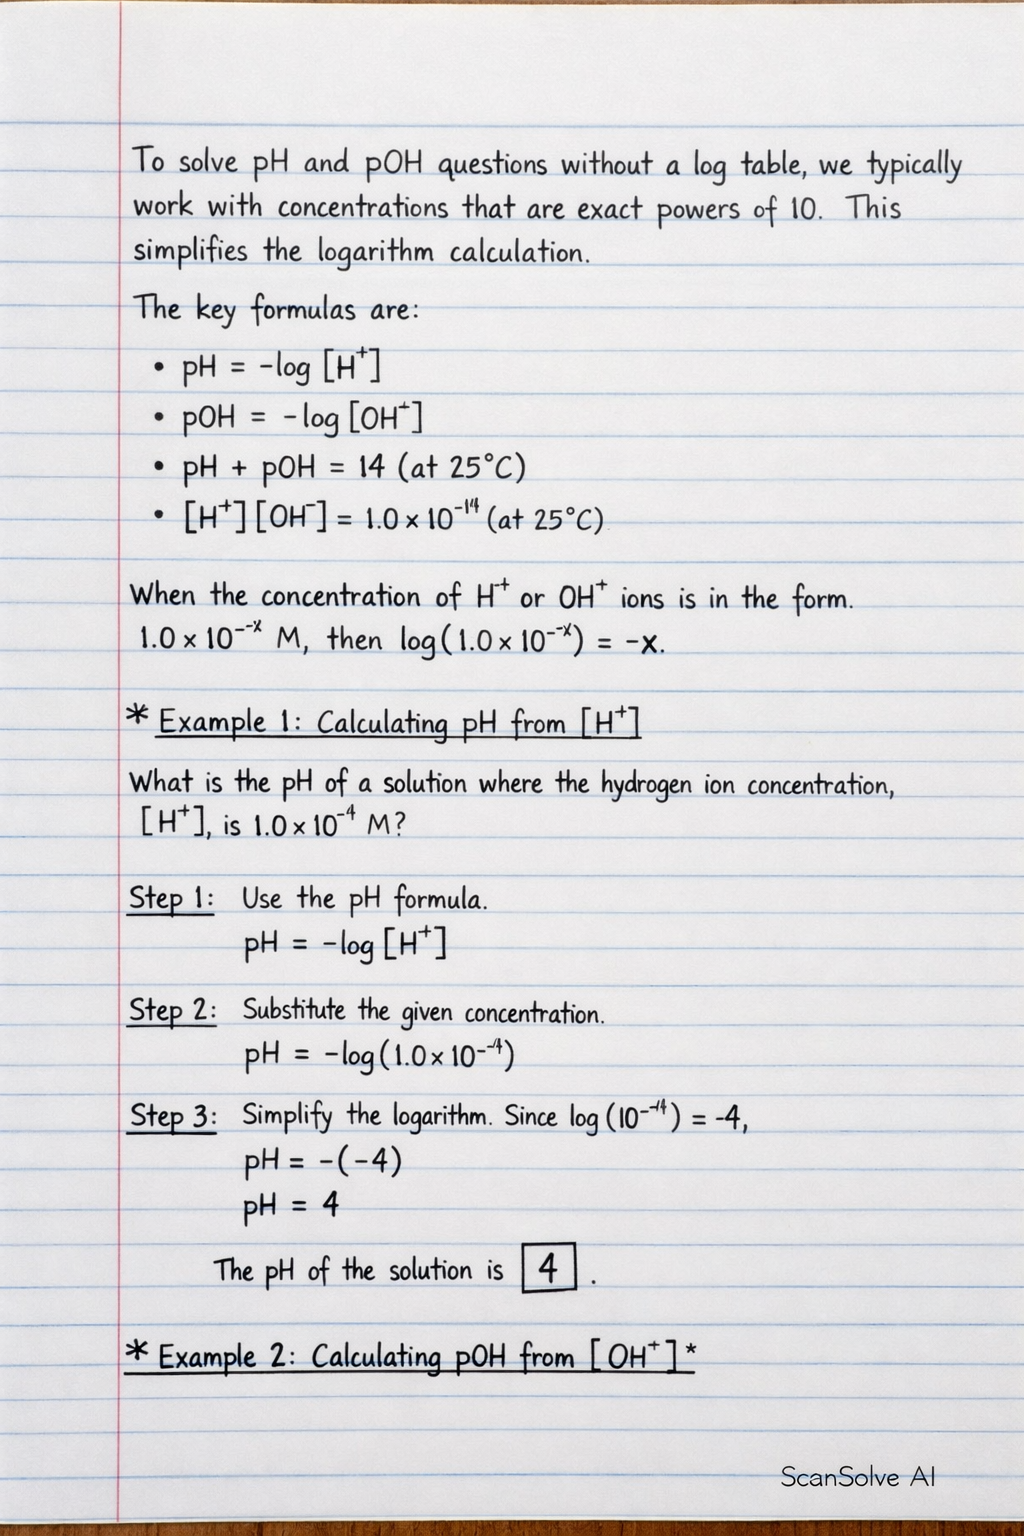 To solve pH and pOH questions without a log table, we typically
work with concentrations that are exact powers of 10. This
simplifies the logarithm calculation.
The key formulas are:
• pH = -log [H⁺]
• pOH = -log [OH⁺]
• pH + pOH = 14 (at 25°C)
• [H⁺][OH⁻] = 1.0 × 10⁻¹⁴ (at 25°C)
When the concentration of H⁺ or OH⁺ ions is in the form.
1.0 × 10⁻⁻ˣ M, then log(1.0 × 10⁻⁻ˣ) = -x.
* Example 1: Calculating pH from [H⁺]
What is the pH of a solution where the hydrogen ion concentration,
[H⁺], is 1.0 × 10⁻⁴ M?
Step 1: Use the pH formula.
pH = -log [H⁺]
Step 2: Substitute the given concentration.
pH = -log(1.0 × 10⁻⁻⁴)
Step 3: Simplify the logarithm. Since log (10⁻⁻⁴) = -4,
pH = -(-4)
pH = 4
The pH of the solution is 4.
* Example 2: Calculating pOH from [OH⁺]*
ScanSolve AI